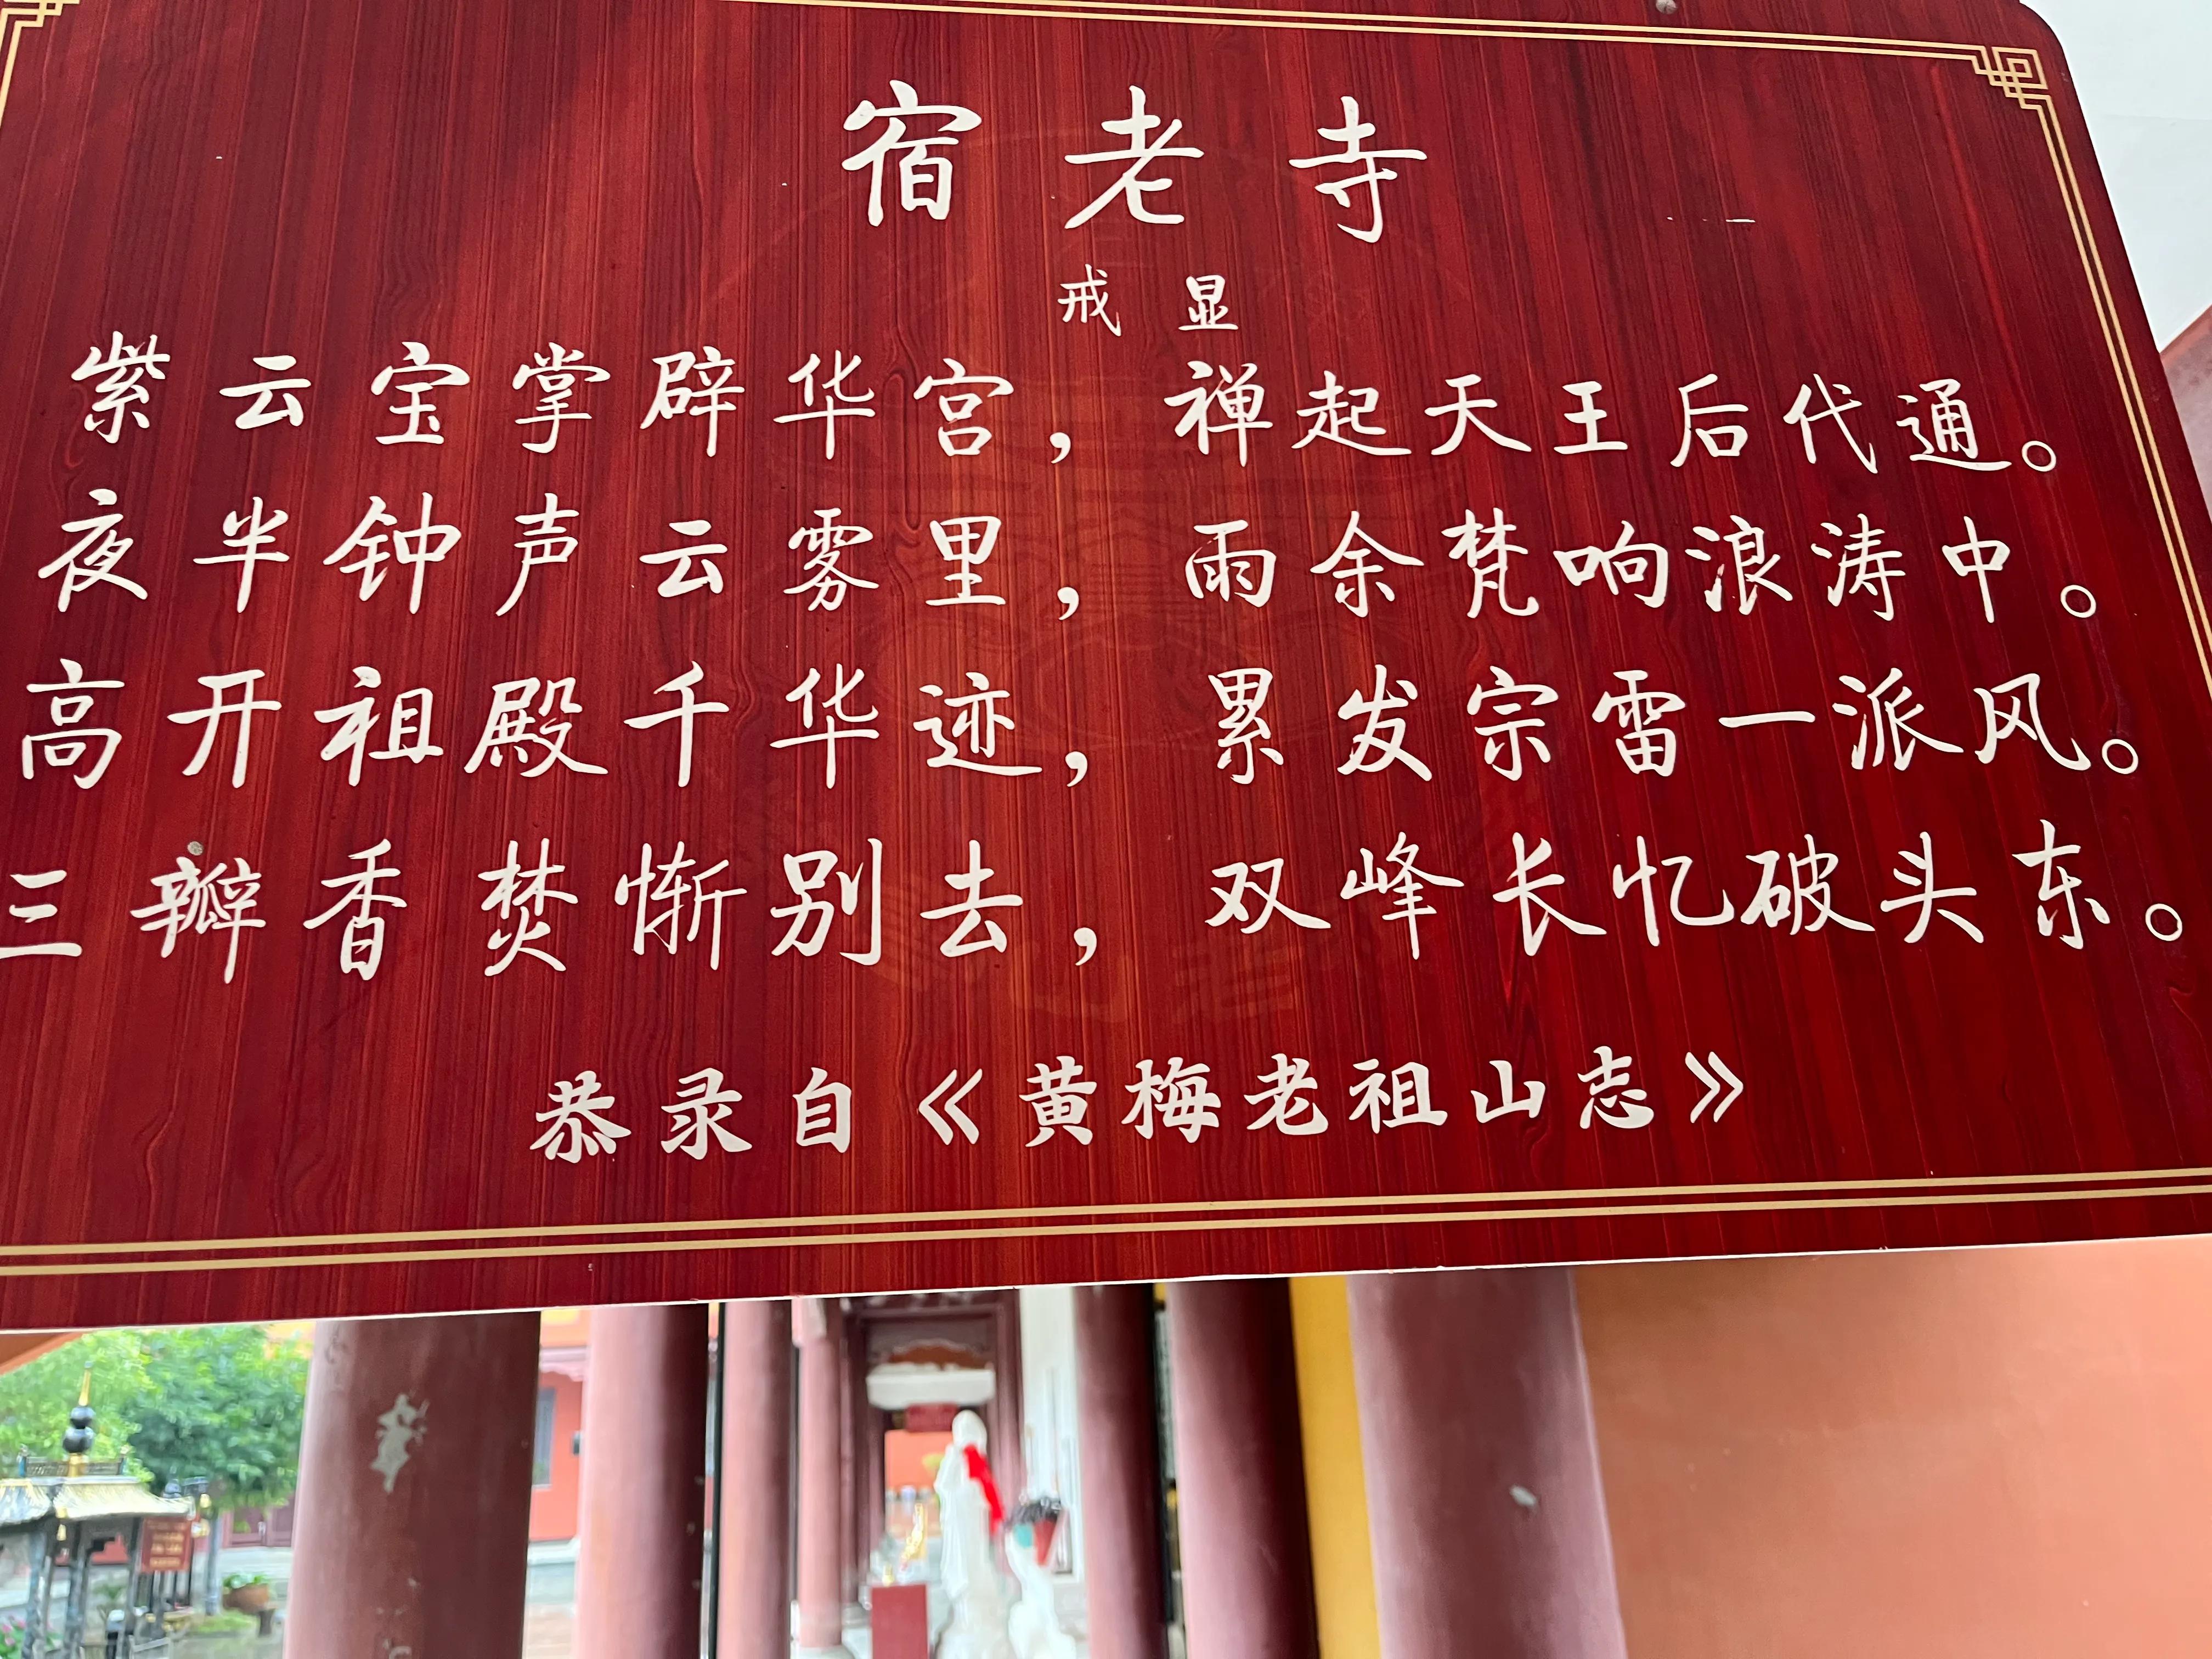 宿老寺
戒显
紫云宝掌辟华宫，禅起天王后代通。
夜半钟声云雾里，雨余梵响浪涛中。
高开祖殿千华迹，累发宗雷一派风。
三瓣香焚惭别去，双峰长忆破头东。
恭录自《黄梅老祖山志》